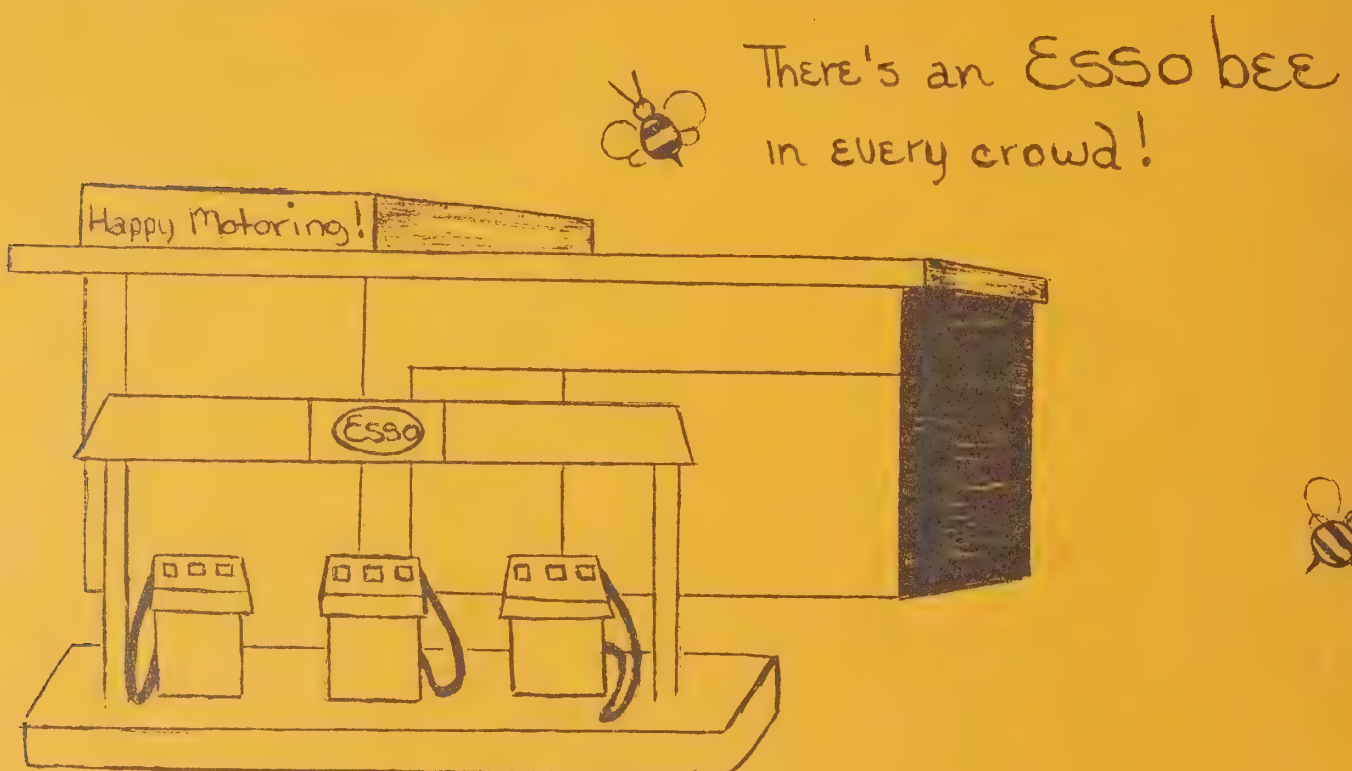 There's an Esso bee
in every crowd!
Happy Motoring!
Esso